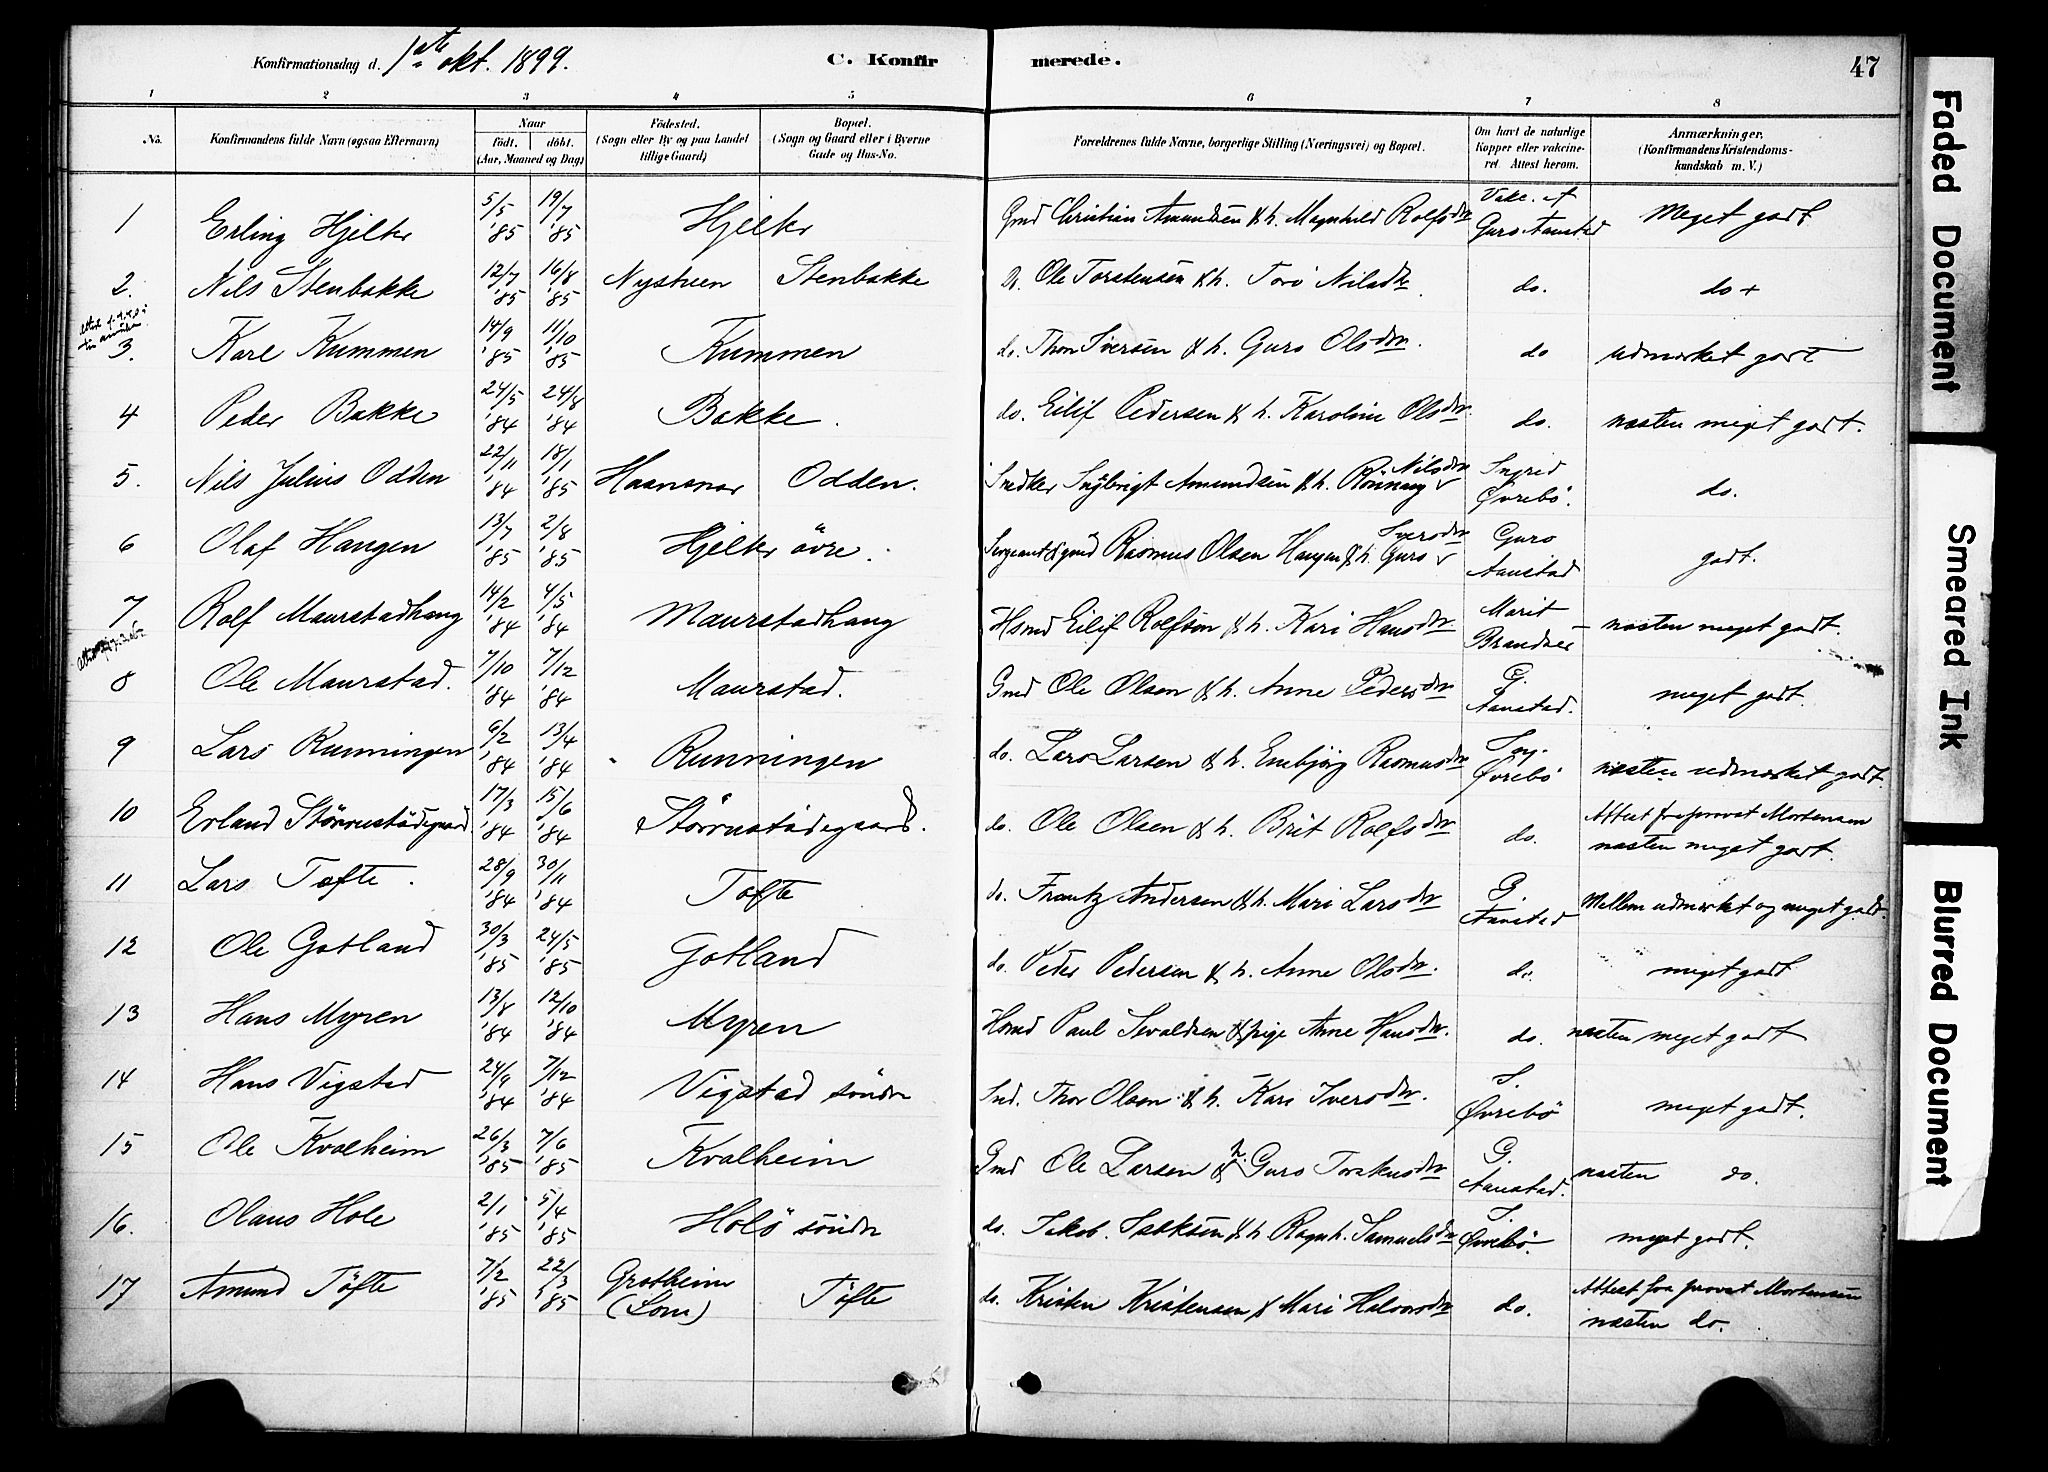 Konfirmationsdag d. 1ste okt. 1899. C. Konfirmerede. 47
1 2 3 4 5 6 7 8
No. Konfirmandens fulde Navn (ogsaa Efternavn) Naar født. døbt. (Aar, Maaned og Dag) Fødested. (Sogn eller By og paa Landet tillige Gaard) Bopæl. (Sogn og Gaard eller i Byerne Gade og Hus-No. Forældrenes fulde Navne, borgerlige Stilling (Næringsvei) og Bopæl. Om havt de naturlige Kopper eller vakcineret. Attest herom. Anmærkninger. (Konfirmandens Kristendomskundskab m. V.)
1 Erling Hjelter 5/5 '85 19/7 '85 Hjelter Gmd Christian Amundsen & h. Magnhild Rolfsdtr Vakc. af Guro Aanstad Meget godt
2. Nils Stenbakke 12/7 '85 16/8 '85 Nystuen Stenbakke Do. Ole Torstensen & h. Torø Nilsdtr do. do +
3. Kare Kummen 14/9 '85 11/10 '85 Kummen do. Thor Iversen & h. Guro Olsdtr. do udmærket godt
4 Peder Bakke 24/5 '84 24/8 '84 Bakke. do. Eilif Pedersen & h. Karoline Olsdtr. do. næsten meget godt.
5. Nils Julius Odden 22/11 '84 18/1 '85 Haansnar Odden. Snedker Ingbrigt Amundsen & h. Rønnaug Nilsdtr Ingrid Øvrebö. do.
6 Olaf Haugen 13/7 '85 2/8 '85 Hjelter övre. Sergeant & gmd Rasmus Olsen Haugen & h. Guro Iversdtr Guro Aanstad godt.
7 Rolf Maurstadhaug 14/2 '84 4/5 '84 Maurstadhaug Hsmd Eilif Rolfsön & h. Kari Hansdtr Marit Brandsar næsten meget godt.
8 Ole Maurstad. 7/10 '84 7/12 '84 Maurstad. Gmd Ole Olsen & h. Anne Pedersdtr G. Aanstad. meget godt.
9 Lars Runningen 6/2 '84 13/4 '84 Runningen do. Lars Larsen & h. Embjörg Rasmusdtr Ing. Øvrebö næsten udmærket godt.
10 Erland Störrustadegaard 17/3 '84 15/6 '84 Störrustadegaard. do. Ole Olsen & h. Brit Rolfsdtr do. Attest fra provst Mortensen næsten meget godt.
11 Lars Tofte. 28/9 '84 30/11 '84 Tofte do. Frantz Andersen & h. Mari Larsdtr G. Aanstad Mellem udmærket og meget godt.
12 Ole Gotland 30/3 '85 24/5 '85 Gotland do. Peder Pedersen & h. Anne Olsdtr. do. meget godt
13 Hans Myren 13/8 '84 12/10 '84 Myren Hsmd Paul Sevaldsen & pige Anne Hansdtr. do. næsten meget godt
14 Hans Vigstad 24/9 '84 7/12 '84 Vigstad söndre Ind. Thor Olsen & h. Kari Iversdtr. I. Øvrebö meget godt.
15 Ole Kvalheim 26/3 '85 7/6 '85 Kvalheim Gmd Ole Larsen & h. Guro Torkusdtr G. Aanstad. næsten do.
16. Olaus Hole 2/1 '85 5/4 '85 Holö söndre do. Jakob Isaksen & h Ragnh. Samuelsdtr I. Øvrebö. meget godt.
17 Amund Töfte 7/2 '85 22/3 '85 Grotheim (Lom) Töfte do. Kristen Kristensen & Mari Halvorsdtr do. Attest fra provst Mortensen næsten do.
Faded Document
Smeared Ink
Blurred Document